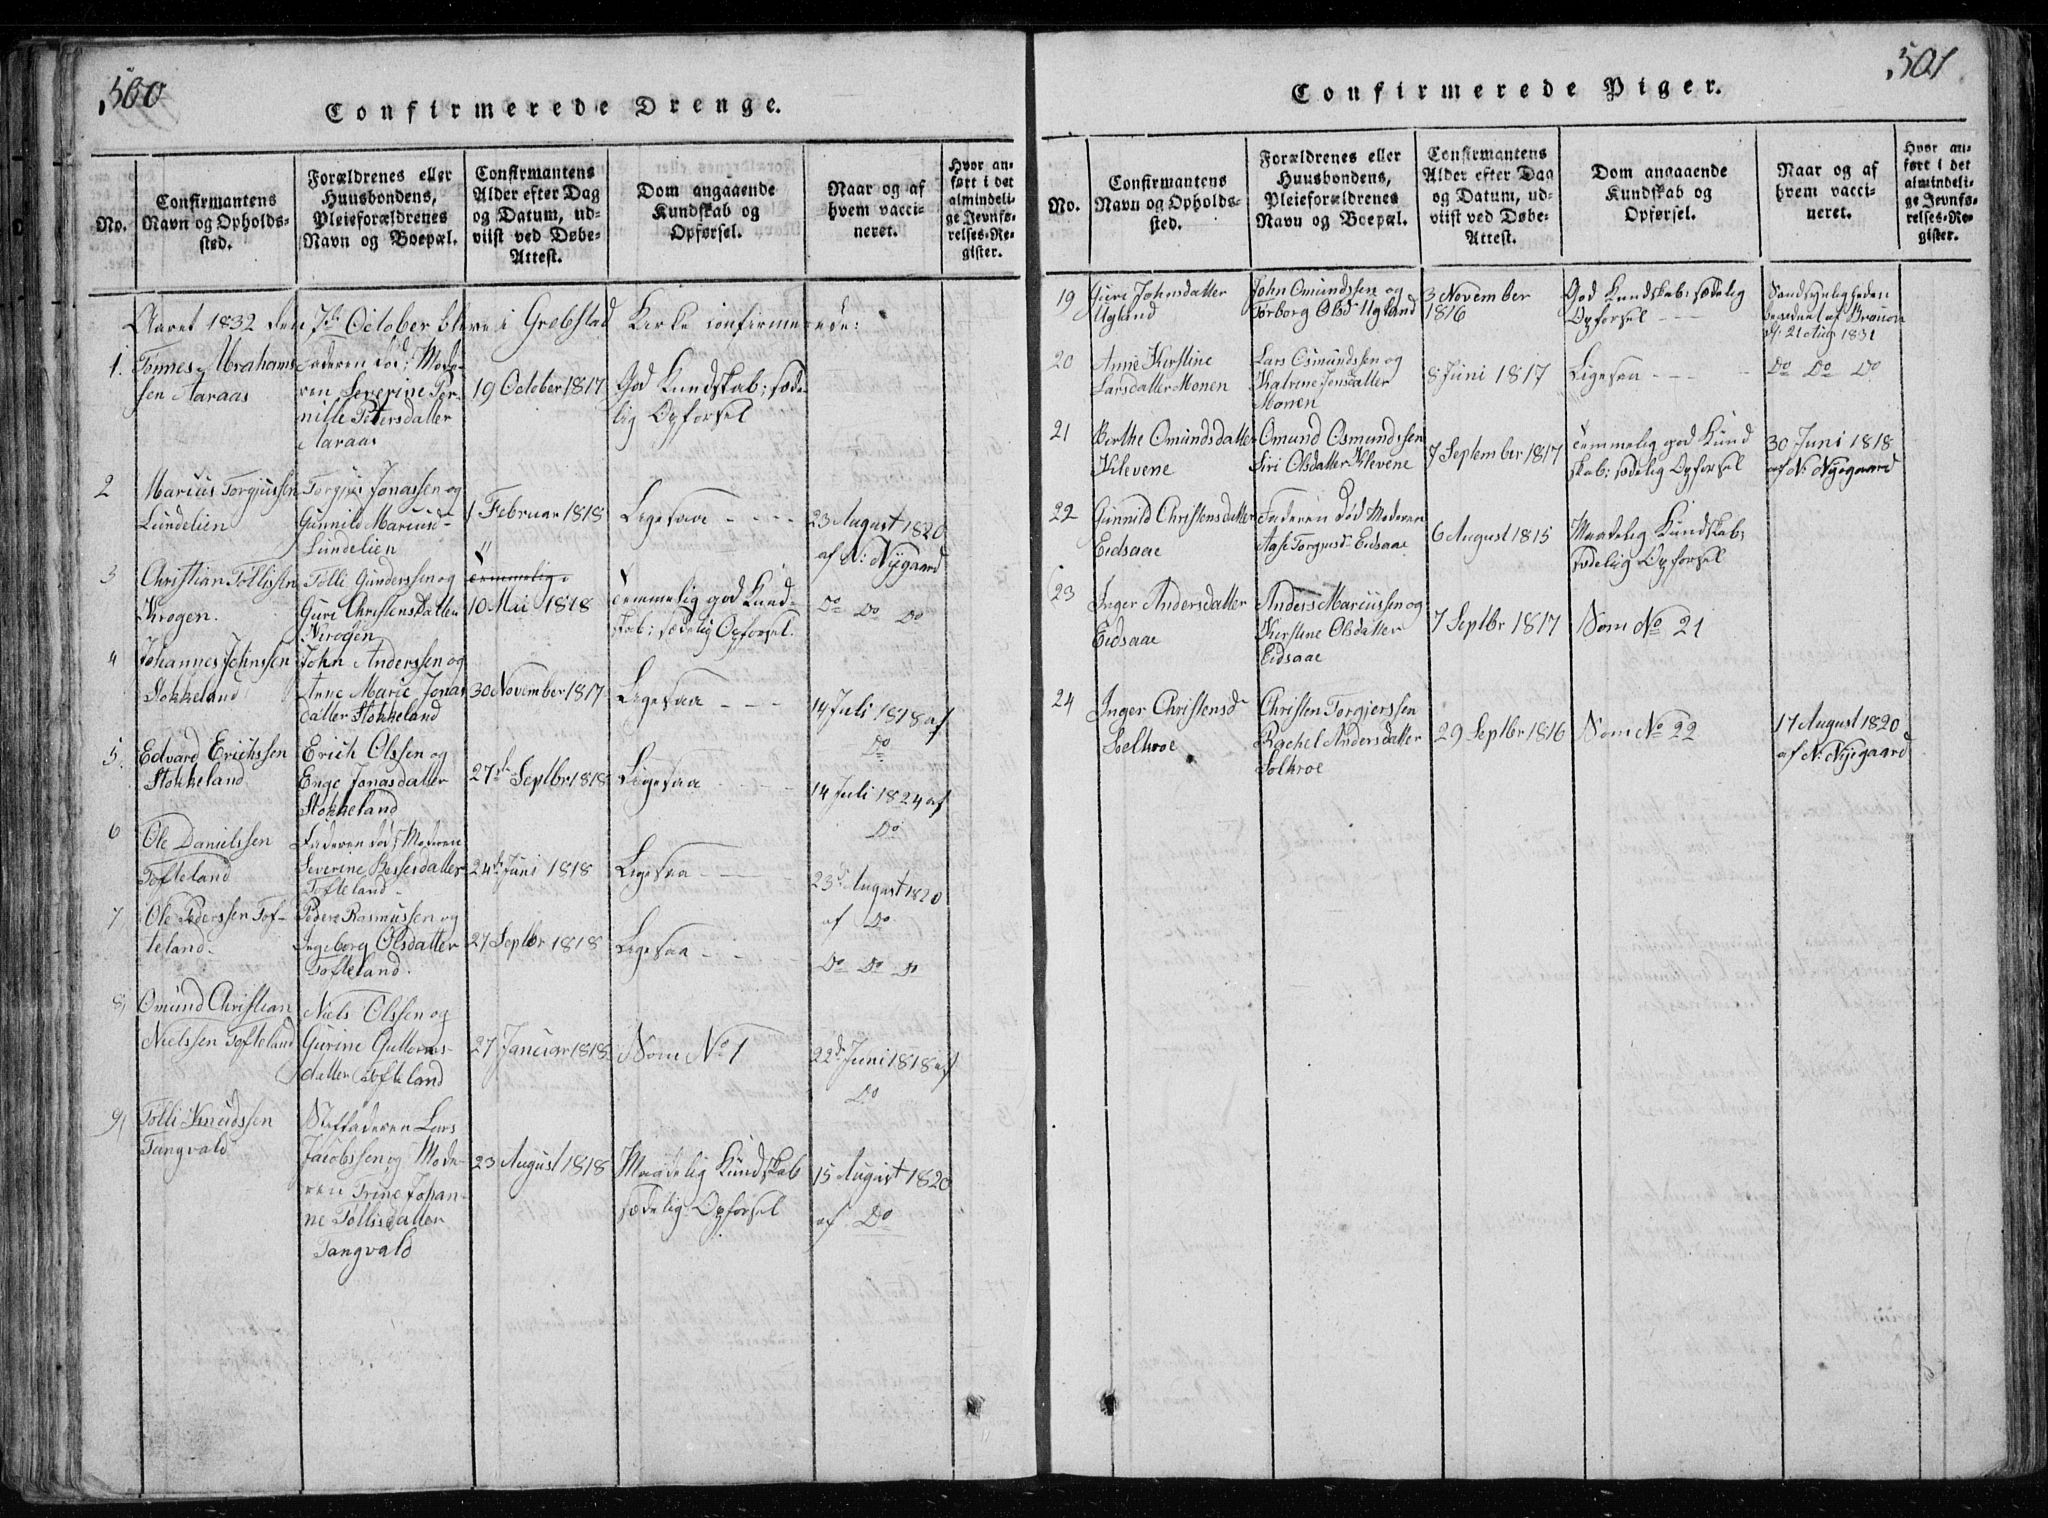 500
Confirmerede Drenge.
No.
Confirmantens
Navn og Opholds-
sted.
Forældrenes eller
Huusbondens,
Pleieforældrenes
Navn og Boepæl.
Confirmantens
Alder efter Dag
og Datum, ud-
viist ved Døbe-
Attest.
Dom angaaende
Kundskab og
Opførsel.
Naar og af
hvem vacci-
neret.
Hvor an-
ført i det
almindeli-
ge Jevnfø-
relses-Re-
gister.
Aaret 1832 den 7de October bleve i Grebstad Kirke confirmerede:
1.
Tønnes Abrahams
sen Aaraas
Faderen død; Mode-
ren Severine Per-
nille Petersdatter
Aaraas
19 October 1817
God Kundskab; sæde-
lig Opførsel
2
Marcus Torgiussen
Lundelien
Torgius Jonassen og
Gunnild Mariusd-
Lundelien
1 Februar 1818
"
Ligesaa - - - -
23 August 1820
af N: Nyegaard
3
Christian Tollissen
Krogen.
Tolli Gunderssen og
Guri Christensdatter
Krogen
temmelig
10 Mii 1818
temmelig god Kund-
skab; sædelig Opførsel.
Do Do Do
4
Johannes Johnssen
Stokkeland
John Anderssen og
Anne Marie Jonas
datter Stokkeland
30 November 1817
Ligesaa - - -
14 Juli 1818 af
Do
5.
Edvard Erichssen
Stokkeland
Erich Olssen og
Enge Jonasdatter
Stokkeland
27de Septbr 1818
Ligesaa - - -
14 Juli 1824 af
Do
6
Ole Danielssen
Tofteland
Faderen død; Moderen
Severine Bessesdatter
Tofteland-
24de Juni 1818
Ligesaa - - -
23de August 1820
af Do
7
Ole Pederssen Tof-
teland-
Peder Rasmussen og
Ingeborg Olsdatter
Tofteland.
27 Septbr 1818
Ligesaa - -
Do Do Do
8,
Omund Christian
Nielssen Tofteland
Niels Olssen og
Gurine Guttorms-
datter Tofteland
27 Januar 1818
Som No 1
22de Juni 1818 af
Do
9,
Tolli Knudssen
Tangvald
Stiffaderen Lars
Jacobssen og Mode-
ren Trine Johan-
ne Tollisdatter
Tangvald
23 August 1818
Maadelig Kundskab
sædelig Opførsel
15 August 1820
af Do
501
Confirmerede Piger.
No.
Confirmantens
Navn og Opholds-
sted.
Forældrenes eller
Huusbondens,
Pleieforældrenes
Navn og Boepæl.
Confirmantens
Alder efter Dag
og Datum, ud-
viist ved Døbe-
Attest.
Dom angaaende
Kundskab og
Opførsel.
Naar og af
hvem vacci-
neret.
Hvor an-
ført i det
almindeli-
ge Jevnfø-
relses-Re-
gister.
19
Guri Johnsdatter
Ugland
John Omundssen og
Torborg Olsd Ugland
3 November
1816
God Kundskab; sædelig
Opførsel - - -
Sandsynligheden
af Bruun
21 Aug 1831
20
Anne Kirstine
Larsdatter Monen
Lars Osmundssen og
Katrine Jensdatter
Monen
8 Juni 1817
Ligesaa - - -
Do Do Do
21
Berthe Omundsdatter
Klevene
Omund Osmundssen
Siri Olsdatter Klevene
7 September 1817
temmelig god Kund
skab; sædelig Opførsel
30 Juni 1818
af N: Nyegaard
22
Gunnild Christensdatter
Eidsaae
Faderen død Moderen
Aase Torgiusd- Eidsaae
6 August 1815
Maadelig Kundskab;
sædelig Opførsel
23
Inger Andersdatter
Eidsaae
Anders Marcussen og
Kirstine Olsdatter
Eidsaae
7 Septbr 1817
Som No 21
24
Inger Christensd-
Solkroe
Christen Torgierssen
Rachel Andersdatter
Solkroe
29 Septbr 1816
Som No 22
17 August 1820
af N: Nyegaard